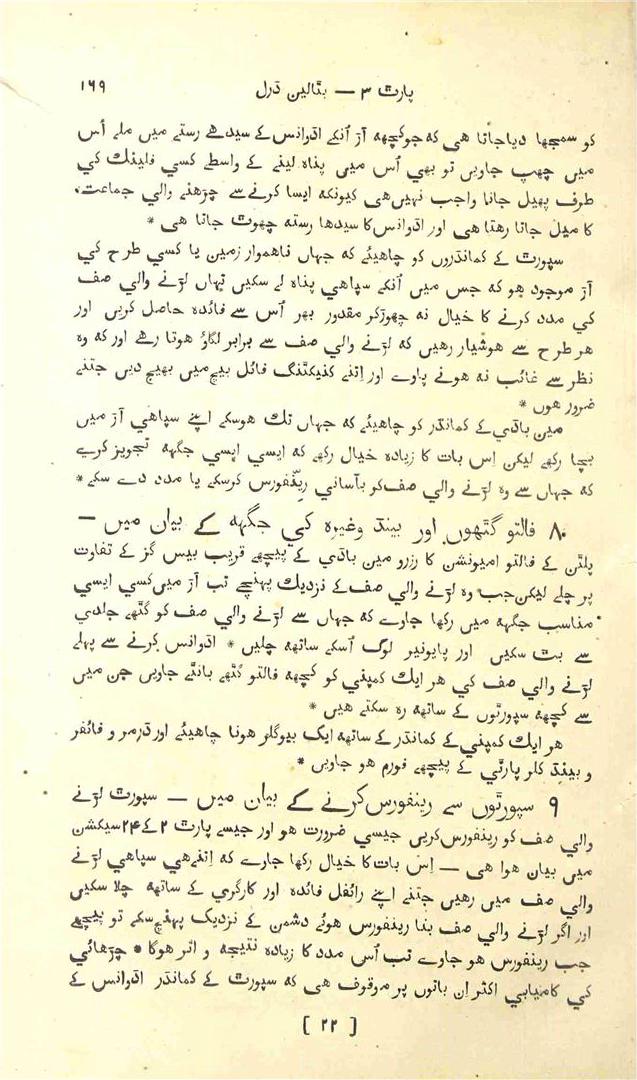 پارٹ ۳ — بٹالین ڈرل
۱۶۹
کو سمجھا دیا جانا ھی کہ جو کچھہ آڑ اُنکے اڈوانس کے سیدھے رستے میں ملے اُس
میں چھپ جاویں تو بھی اُس میں پناہ لینے کے واسطے کسی فلینک کي
طرف پھیل جانا واجب نہیں ھی کیونکہ ایسا کرنے سے چڑھنے والي جماعت
کا میل جاتا رھتا ھی اور اڈوانس کا سیدھا رستہ چھوٹ جاتا ھی *
سپورٹ کے کمانڈروں کو چاھیئے کہ جہاں ناھموار زمین یا کسي طرح کي
آڑ موجود ھو کہ جس میں اُنکے سپاھي پناہ لے سکیں تہاں لڑنے والي صف
کي مدد کرنے کا خیال نہ چھوڑکر مقدور بھر اُس سے فائدہ حاصل کریں اور
ھر طرح سے ھوشیار رھیں کہ لڑنے والي صف سے برابر لگاؤ ھوتا رھے اور کہ وہ
نظر سے غائب نہ ھونے پاوے اور اِتنے کنیکٹنگ فائل بیچ میں بھیج دیں جتنے
ضرور ھوں *
مین باڈي کے کمانڈر کو چاھیئے کہ جہاں تک ھوسکے اپنے سپاھي آڑ میں
بچا رکھے لیکن اِس بات کا زیادہ خیال رکھے کہ ایسي ایسي جگہہ تجویز کرے
کہ جہاں سے وہ لڑنے والي صف کو بآساني رینفورس کرسکے یا مدد دے سکے *
۸ فالتو گٹھوں اور بینڈ وغیرہ کي جگہہ کے بیان میں —
پلٹن کے فالتو امیونشن کا رزرو مین باڈي کے پیچھے قریب بیس گز کے تفاوت
پر چلے لیکن جب وہ لڑنے والي صف کے نزدیک پہنچے تب آڑ میں کسي ایسي
مناسب جگہہ میں رکھا جاوے کہ جہاں سے لڑنے والي صف کو گٹھے جلدي
سے بٹ سکیں اور پایونیر لوگ اُسکے ساتھہ چلیں * اڈوانس کرنے سے پہلے
لڑنے والي صف کي ھر ایک کمپني کو کچھہ فالتو گٹھے بانٹے جاویں جن میں
سے کچھہ سپورٹوں کے ساتھہ رہ سکتے ھیں *
ھر ایک کمپني کے کمانڈر کے ساتھہ ایک بیوگلر ھونا چاھیئے اور ڈرمر و فائفر
و بینڈ کلر پارٹي کے پیچھے فورم ھو جاویں *
۹ سپورٹوں سے رینفورس کرنے کے بیان میں — سپورٹ لڑنے
والي صف کو رینفورس کریں جیسي ضرورت ھو اور جیسے پارٹ ۲ کے ۲۴ سیکشن
میں بیان ھوا ھی — اِس بات کا خیال رکھا جاوے کہ اِتنے ھي سپاھي لڑنے
والي صف میں رھیں جتنے اپنے رائفل فائدہ اور کارگري کے ساتھہ چلا سکیں
اور اگر لڑنے والي صف بنا رینفورس ھوئے دشمن کے نزدیک پہنچ سکے تو پیچھے
جب رینفورس ھو جاوے تب اُس مدد کا زیادہ نتیجہ و اثر ھوگا * چڑھائي
کي کامیابي اکثر اِن باتوں پر موقوف ھی کہ سپورٹ کے کمانڈر اڈوانس کے
[ ۲۲ ]